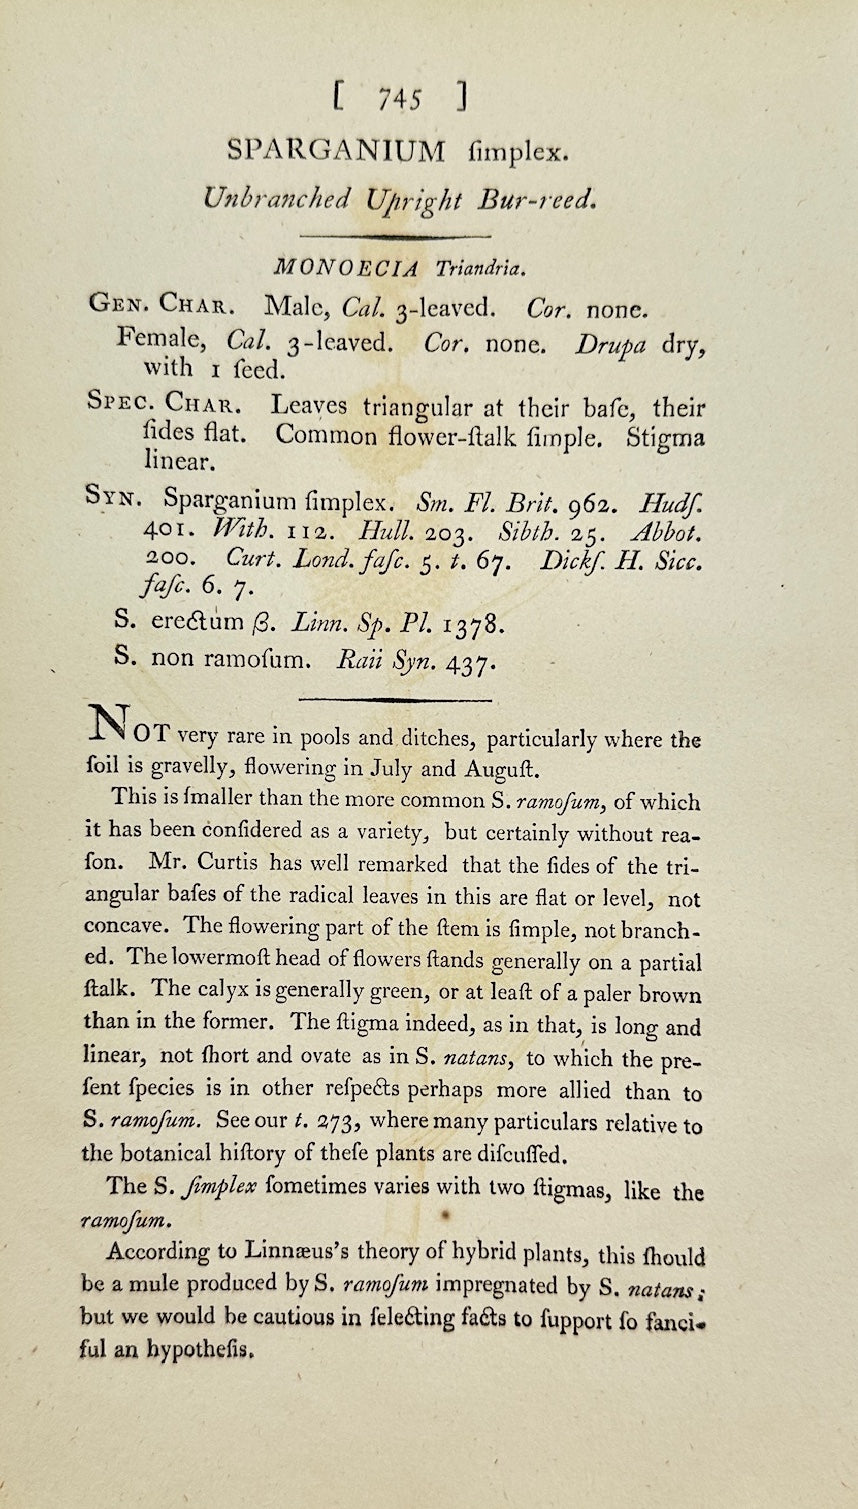 [ 745 ]
SPARGANIUM ſimplex.
Unbranched Upright Bur-reed.
MONOECIA Triandria.
GEN. CHAR. Male, Cal. 3-leaved. Cor. none.
Female, Cal. 3-leaved. Cor. none. Drupa dry,
with 1 ſeed.
SPEC. CHAR. Leaves triangular at their baſe, their
ſides flat. Common flower-ſtalk ſimple. Stigma
linear.
SYN. Sparganium ſimplex. Sm. Fl. Brit. 962. Hudſ.
401. With. 112. Hull. 203. Sibth. 25. Abbot.
200. Curt. Lond. faſc. 5. t. 67. Dickſ. H. Sicc.
faſc. 6. 7.
S. erectum β. Linn. Sp. Pl. 1378.
S. non ramoſum. Raii Syn. 437.
NOT very rare in pools and ditches, particularly where the
ſoil is gravelly, flowering in July and Auguſt.
This is ſmaller than the more common S. ramoſum, of which
it has been conſidered as a variety, but certainly without rea-
ſon. Mr. Curtis has well remarked that the ſides of the tri-
angular baſes of the radical leaves in this are flat or level, not
concave. The flowering part of the ſtem is ſimple, not branch-
ed. The lowermoſt head of flowers ſtands generally on a partial
ſtalk. The calyx is generally green, or at leaſt of a paler brown
than in the former. The ſtigma indeed, as in that, is long and
linear, not ſhort and ovate as in S. natans, to which the pre-
ſent ſpecies is in other reſpects perhaps more allied than to
S. ramoſum. See our t. 273, where many particulars relative to
the botanical hiſtory of theſe plants are diſcuſſed.
The S. ſimplex ſometimes varies with two ſtigmas, like the
ramoſum.
According to Linnæus's theory of hybrid plants, this ſhould
be a mule produced by S. ramoſum impregnated by S. natans;
but we would be cautious in ſelecting facts to ſupport ſo fanci-
ful an hypotheſis.